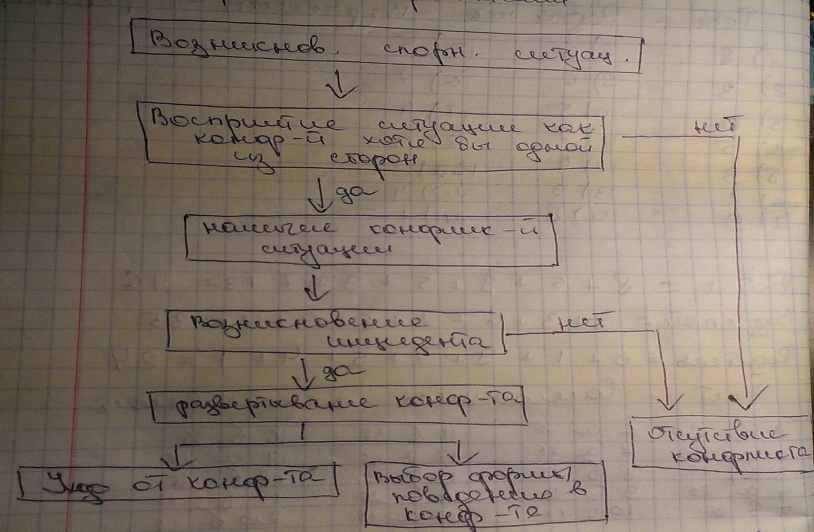 Возникнов. спорн. ситуац.
Восприятие ситуации как
конф-й хотя бы одной
из сторон
нет
да
наличие конфлик-й
ситуации
Возникновение
инцидента
нет
да
развертывание конф-та
Отсутствие
конфликта
Уход от конф-та
Выбор формы
поведения в
конф-те